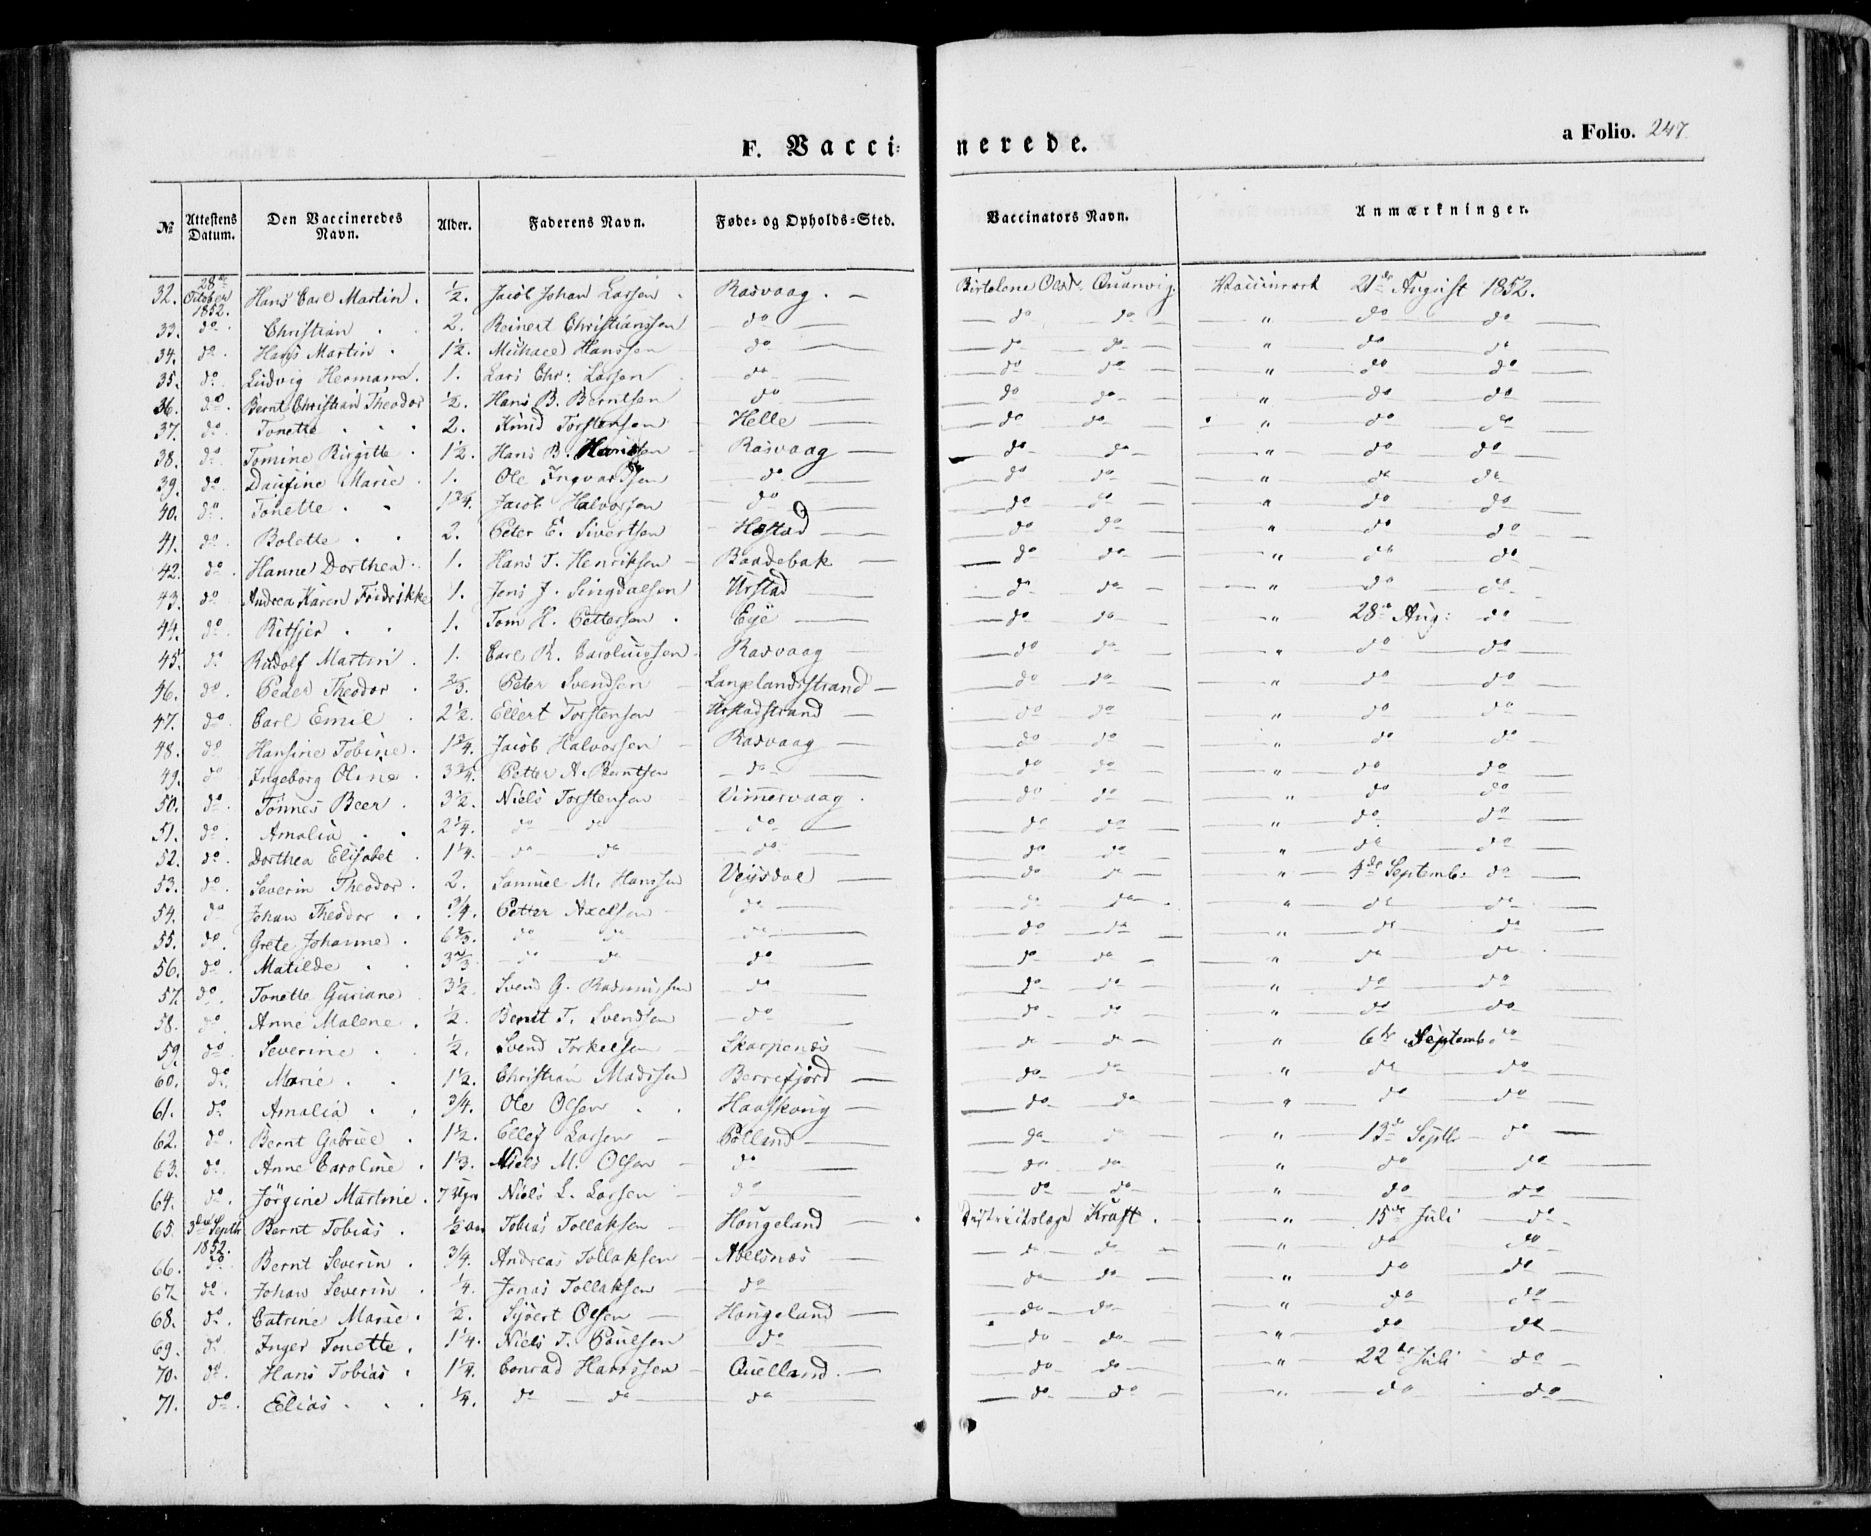 F. Vacci= nerede. a Folio. 247.
№ | Attestens Datum. | Den Vaccineredes Navn. | Alder. | Faderens Navn. | Føde- og Opholds-Sted. | Vaccinators Navn. | Anmærkninger.
32. | 28de October 1852. | Hans Carl Martin. | ½. | Jacob Johan Larsen. | Rasvaag. | Quanvig. | Vaccinert 21de August 1852.
33. | do. | Christian | 2. | Reinert Christianssen | do | do do | " do do
34. | do. | Hans Martin. | 1½. | Michael Hanssen | do | do do | " do do
35. | do. | Ludvig Hermann. | 1. | Lars Chr: Larsen | do | do do | " do do
36. | do. | Bernt Christian Theodor | ½. | Hans B. Berntsen | do | do do | " do do
37. | do. | Tonette | 2. | Knud Torstensen | Helle | do do | " do do
38. | do. | Tomine Birgitte. | 1½. | Hans B. Hanssen | Rasvaag | do do | " do do
39. | do. | Daufine Marie | 1. | Ole Ingvardsen | do | do do | " do do
40. | do. | Tonette | 1¾. | Jacob Halvorsen | do | do do | " do do
41. | do. | Bolette | 2. | Peter E. Sivertsen | | do do | " do do
42. | do. | Hanne Dorthea. | 1. | Hans T. Henriksen | Baadebak | do do | " do do
43. | do | Andrea Karen Fridrikke | 1. | Jens J. Singdalsen | Urstad | do do | " do do
44. | do. | Ritsjer | 1. | Tom K. Pettersen. | Eye | do do | " 28de Aug: do
45. | do | Rudolf Martin. | 1. | Carl R. Carolinssen | Rasvaag | do do | " do do
46. | do. | Peder Theodor. | ⅔. | Peter Svendsen | Langelandsstrand | do do | " do do
47. | do. | Carl Emil. | 2½. | Ellert Torstensen | Urstadstrand | do do | " do do
48. | do | Hansine Tobine. | 1¾. | Jacob Halvorsen | Rasvaag | do do | " do do
49. | do | Ingeborg Oline. | 3¾. | Petter A. Berntsen | do | do do | " do do
50. | do. | Tönnes Beer. | 3½. | Niels Torstensen | Vimervaag. | do do | " do do
51. | do. | Amalia | 2¼. | do do | do | do do | " do do
52. | do. | Dorthea Elisabet. | 1¼. | do do | do | do do | " do do
53. | do. | Severin Theodor. | 2. | Samuel M. Hanssen | Veisdal | do do | " 4de Septemb. do
54. | do | Johan Theodor. | ¾. | Petter Axelsen | do | do do | " do do
55. | do. | Grete Johanne. | 6⅔. | do do | do | do do | " do do
56. | do. | Matilde | 3⅔ | do do | do | do do | " do do
57. | do. | Tonette Guriane | 3½ | Svend G. Rasmussen | do | do do | " do do
58. | do. | Anne Malene. | ½. | Bernt T. Svendsen | do | do do | " do do
59. | do. | Severine | ½. | Svend Torkelsen | Skarpenes | do do | " 6te Septemb. do
60. | do. | Marie | 1½. | Christian Madssen | Berrefjord | do do | " do do
61. | do. | Amalia | ¾. | Ole Olsen | | do do | " do do
62. | do. | Bernt Gabriel. | 1½. | Ellef Larsen | Polland | do do | " 13de Septb. do
63. | do. | Anne Caroline. | 1⅓. | Niels M. Olsen | do | do do | " do do
64. | do. | Jörgine Martine. | 7 Ugr | Niels L. Larsen | do | do do | " do do
65. | 3die Septbr 1852. | Bernt Tobias. | ½ | Tobias Tollaksen | Hougeland | Districtslæge Kraft. | " 15de Juli do
66. | do. | Bernt Severin. | ¾. | Andreas Tollaksen | Abelsnæs | do do | " do do
67. | do. | Johan Severin. | ¼. | Jonas Tollaksen | do | do do | " do do
68. | do. | Catrine Marie. | ½. | Syvert Olsen | Hougeland | do do | " do do
69. | do. | Inger Tonette. | 1¼. | Niels T. Paulsen | do | do do | " do do
70. | do. | Hans Tobias. | 1¼. | Conrad Hanssen | Quelland. | do do | " 22de Juli do
71. | do. | Elias | ¼. | do do | do | do do | " do do